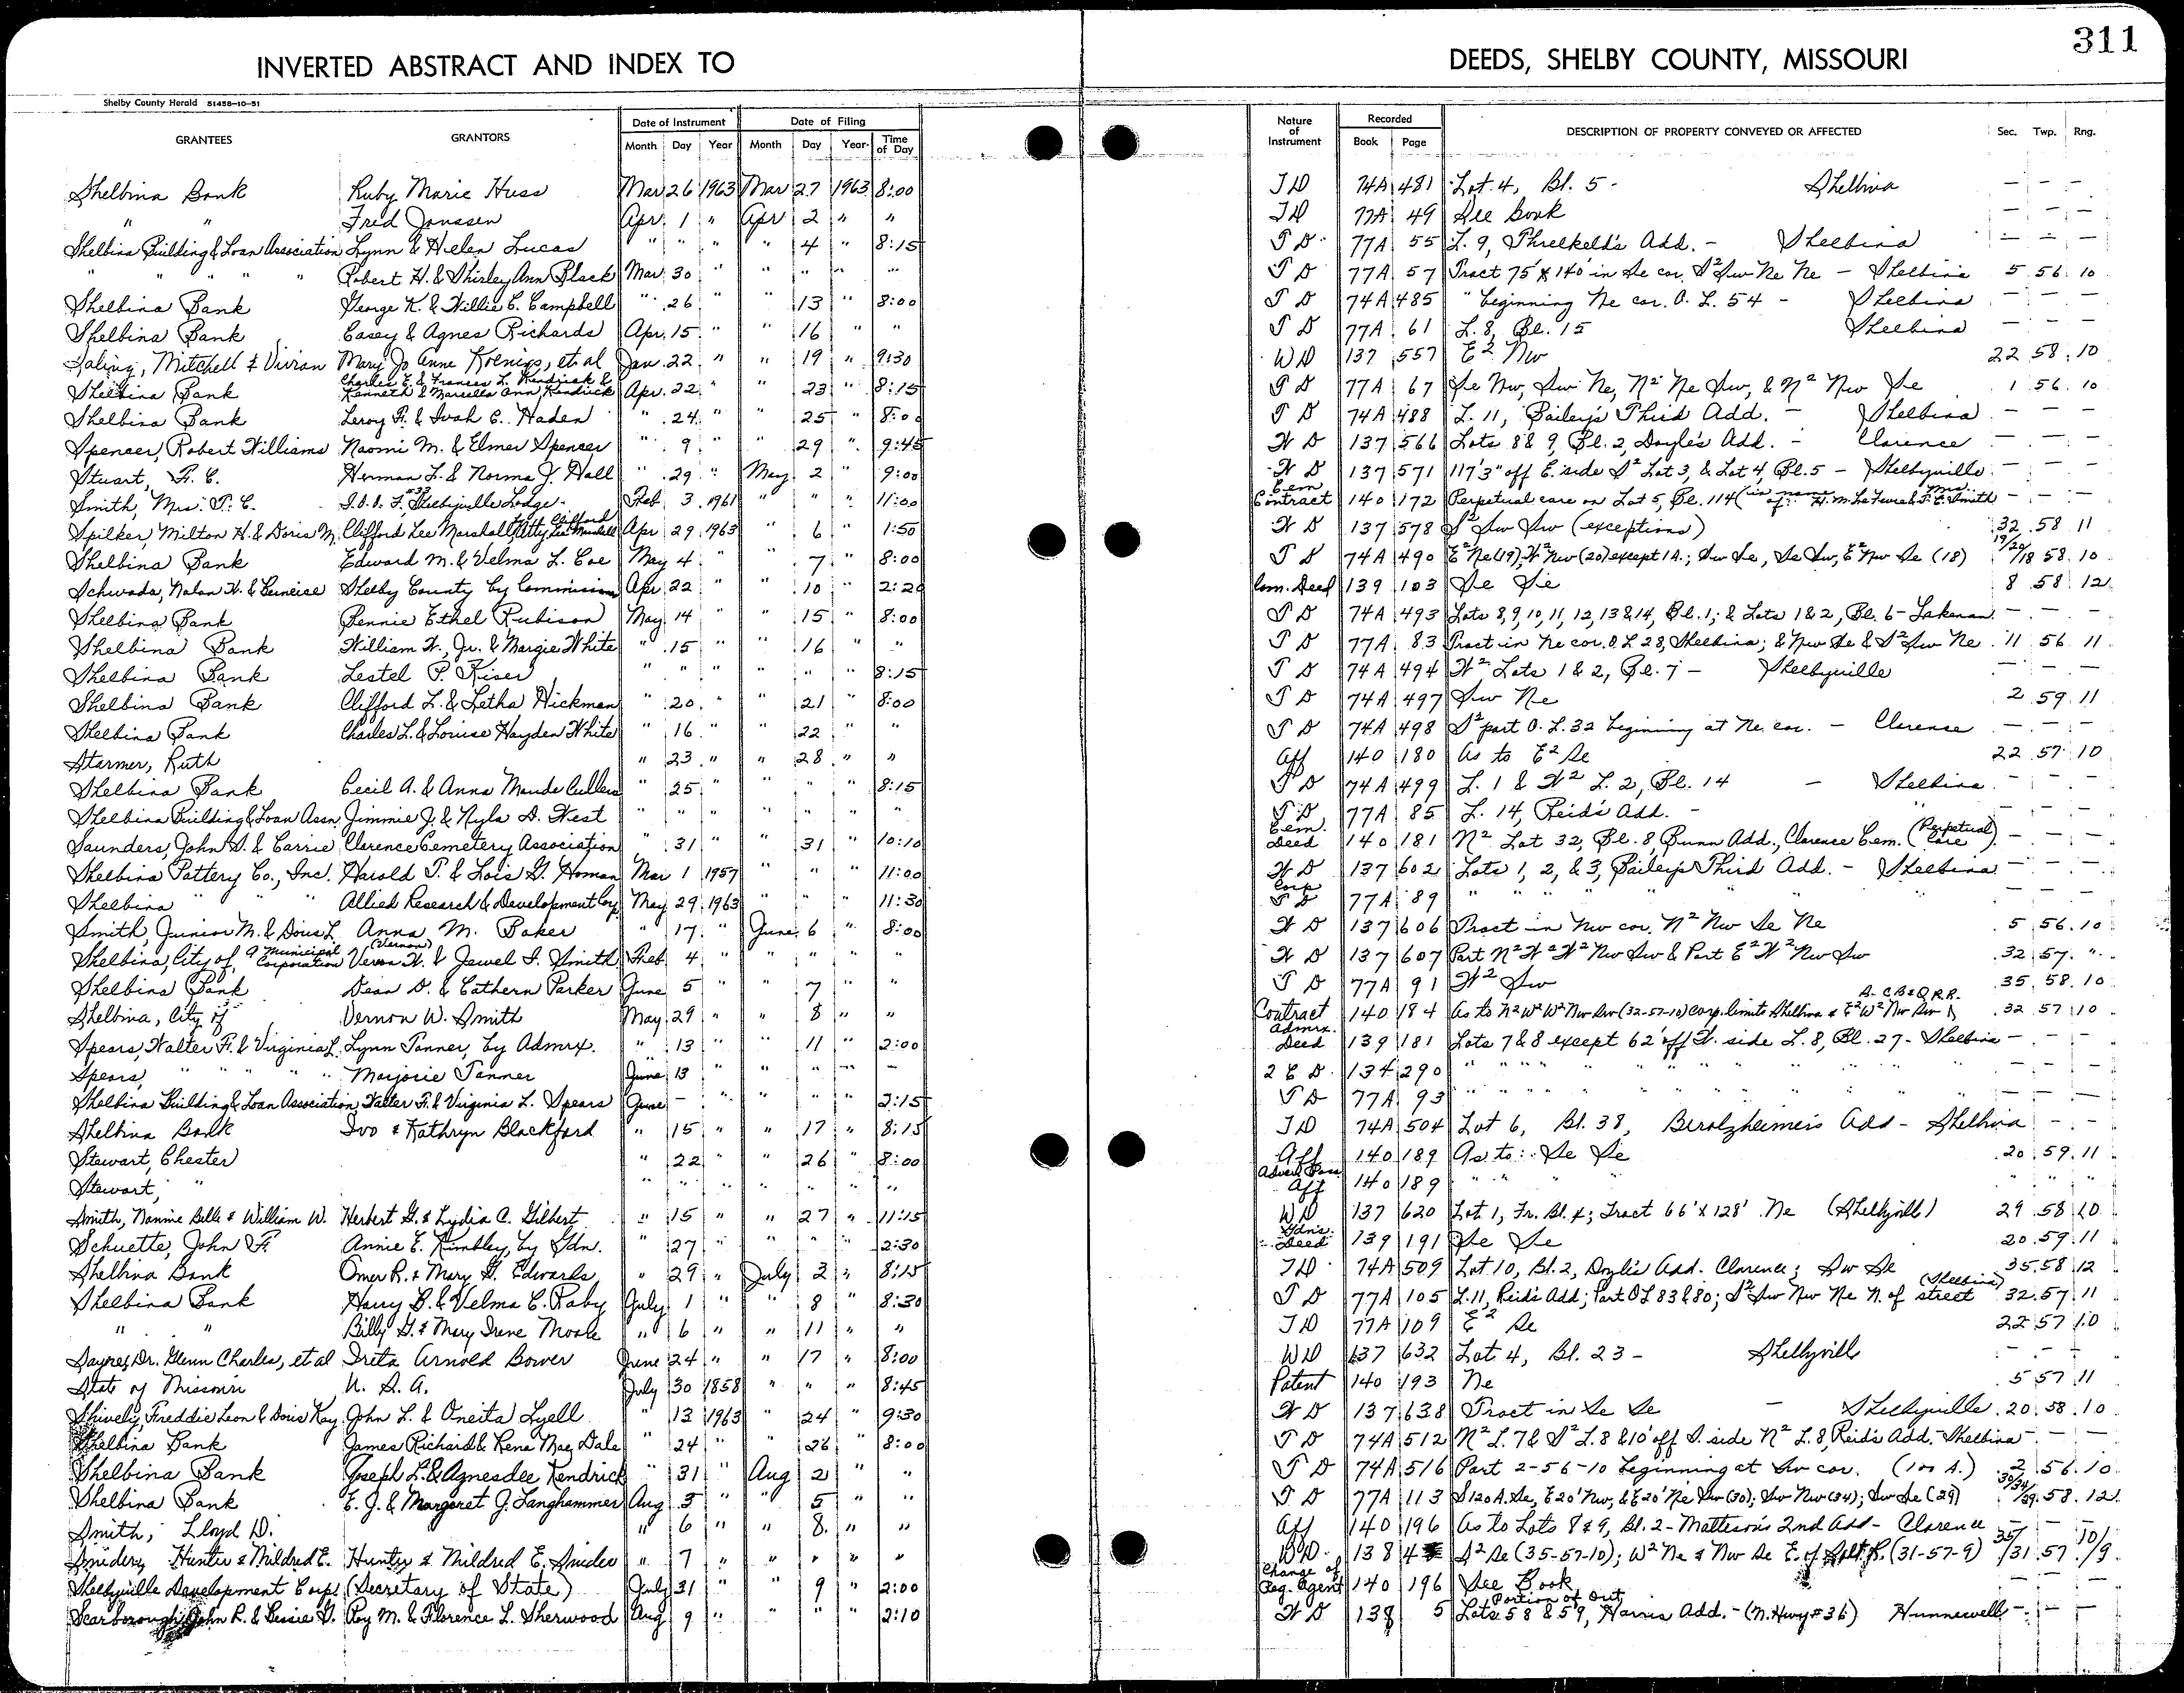 311
INVERTED ABSTRACT AND INDEX TO DEEDS, SHELBY COUNTY, MISSOURI
Shelby County Herald 51458-10-51
GRANTEES GRANTORS Date of Instrument Date of Filing Nature of Instrument Recorded DESCRIPTION OF PROPERTY CONVEYED OR AFFECTED Sec. Twp. Rng.
Month Day Year Month Day Year Time of Day Book Page
Shelbina Bank Ruby Marie Huss Mar 26 1963 Mar 27 1963 8:00 TD 74A 481 Lot 4, Bl. 5 - Shelbina — — —
" " Fred Janssen Apr. 1 " Apr 2 " " TD 77A 49 See book — — —
Shelbina Building & Loan Association Lynn & Helen Lucas " " " " 4 " 8:15 TD 77A 55 L. 9, Threlkeld's Add. - Shelbina — — —
" " " " Robert H. & Shirley Ann Black Mar. 30 " " " " " TD 77A 57 Tract 75' X 140' in Se cor. S² Sw Ne Ne - Shelbina 5 56 10
Shelbina Bank George K. & Willie C. Campbell " 26 " " 13 " 8:00 TD 74A 485 " beginning Ne cor. O. L. 54 - Shelbina — — —
Shelbina Bank Casey & Agnes Richards Apr. 15 " " 16 " " TD 77A 61 L. 8, Bl. 15 Shelbina — — —
Saling, Mitchell & Vivian Mary Jo Anne Koenigs, et al Jan. 22 " " 19 " 9:30 WD 137 557 E² Nw 22 58 10
Shelbina Bank Charles E. & Frances L. Kendrick & Kenneth & Marcella Ann Kendrick Apr. 22 " " 23 " 8:15 TD 77A 67 Se Nw, Sw Ne, N² Ne Sw, & N² Nw Se 1 56 10
Shelbina Bank Leroy F. & Ivah C. Haden " 24 " " 25 " 8:00 TD 74A 488 L. 11, Bailey's Third Add. - Shelbina — — —
Spencer, Robert Williams Naomi M. & Elmer Spencer " 9 " " 29 " 9:45 WD 137 566 Lots 8 & 9, Bl. 2, Doyle's Add. - Clarence — — —
Stuart, F. C. Herman L. & Norma J. Hall " 29 " May 2 " 9:00 WD 137 571 117'3" off E. side S² Lot 3, & Lot 4, Bl. 5 - Shelbyville — — —
Smith, Mrs. T. C. I.O.O.F. #33 Shelbyville Lodge Feb. 3 1961 " " " 11:00 Cem Contract 140 172 Perpetual care on Lot 5, Bl. 114 — — —
Spilker, Milton H. & Doris M. Clifford Lee Marshall Apr 29 1963 " 6 " 1:50 WD 137 578 S² Sw Sw (exceptions) 32 58 11
Shelbina Bank Edward M. & Velma L. Coe May 4 " " 7 " 8:00 TD 74A 490 E² Ne (19); W² Nw (20) except 1A.; Sw Se, Se Sw, E² Nw Se (18) 19/20/18 58 10
Schwada, Nolan H. & Berneice Shelby County by Commission Apr 22 " " 10 " 2:20 Com. Deed 139 103 Se Se 8 58 12
Shelbina Bank Bennie Ethel Rubison May 14 " " 15 " 8:00 TD 74A 493 Lots 8, 9, 10, 11, 12, 13 & 14, Bl. 1; & Lots 1 & 2, Bl. 6 - Lakenan — — —
Shelbina Bank William W., Jr. & Margie White " 15 " " 16 " " TD 77A 83 Tract in Ne cor. O L 28, Shelbina; & Nw Se & S² Sw Ne 11 56 11
Shelbina Bank Lestel P. Kiser " " " " " " 8:15 TD 74A 494 W² Lots 1 & 2, Bl. 7 - Shelbyville — — —
Shelbina Bank Clifford L. & Letha Hickman " 20 " " 21 " 8:00 TD 74A 497 Sw Ne 2 59 11
Shelbina Bank Charles L. & Louise Hayden White " 16 " " 22 " " TD 74A 498 S² part O. L. 32 beginning at Ne. cor. - Clarence — — —
Starmer, Ruth " 23 " " 28 " " Aff 140 180 As to E² Se 22 57 10
Shelbina Bank Cecil A. & Anna Maude Cullers " 25 " " " " 8:15 TD 74A 499 L. 1 & W² L. 2, Bl. 14 - Shelbina — — —
Shelbina Building & Loan Assn. Jimmie J. & Nyla D. West " " " " " " " TD 77A 85 L. 14, Reid's Add. - " — — —
Saunders, John S. & Carrie Clarence Cemetery Association " 31 " " 31 " 10:10 Cem. Deed 140 181 N² Lot 32, Bl. 8, Bunn Add., Clarence Cem. (Perpetual Care) — — —
Shelbina Pottery Co., Inc. Harold T. & Lois G. Homan Mar 1 1957 " " " 11:00 WD 137 602 Lots 1, 2, & 3, Bailey's Third Add. - Shelbina — — —
Shelbina " " Allied Research & Development Corp. May 29 1963 " " " 11:30 Corp TD 77A 89 " " " " " " — — —
Smith, Junior M. & Doris L. Anna M. Baker " 17 " June 6 " 8:00 WD 137 606 Tract in Nw cor. N² Nw Se Ne 5 56 10
Shelbina, City of, a Municipal Corporation Veron (Vernon) W. & Jewel I. Smith Feb. 4 " " " " " WD 137 607 Part N² W² W² Nw Sw & Part E² W² Nw Sw 32 57 "
Shelbina Bank Dean D. & Cathern Parker June 5 " " 7 " " TD 77A 91 W² Sw 35 58 10
Shelbina, City of Vernon W. Smith May 29 " " 8 " " Contract 140 184 As to N² W² W² Nw Sw (32-57-10) Corp. limits Shelbina & E² W² Nw Sw 32 57 10
Spears, Walter F. & Virginia L. Lynn Tanner, by Admrx. " 13 " " 11 " 2:00 Admrx. Deed 139 181 Lots 7 & 8 except 62' off W. side L. 8, Bl. 27 - Shelbina — — —
Spears, " " " " Marjorie Tanner June 13 " " " " 2 C D. 134 290 " " " " " " — — —
Shelbina Building & Loan Association Walter F. & Virginia L. Spears June — " " " " 2:15 TD 77A 93 " " " " " " — — —
Shelbina Bank Ivo & Kathryn Blackford " 15 " " 17 " 8:15 TD 74A 504 Lot 6, Bl. 38, Berolzheimer's Add - Shelbina — — —
Stewart, Chester " 22 " " 26 " 8:00 Aff 140 189 As to: Se Se 20 59 11
Stewart, " " " " " " " " Aff 140 189 " " " " " "
Smith, Nannie Belle & William W. Herbert G. & Lydia C. Gilbert " 15 " " 27 " 11:15 WD 137 620 Lot 1, Fr. Bl. 4; Tract 66' X 128' Ne (Shelbyvill) 29 58 10
Schuette, John F. Annie E. Kimbley, by Gdn. " 27 " " " " 2:30 Gdn's Deed 139 191 Se Se 20 59 11
Shelbina Bank Omer R. & Mary G. Edwards " 29 " July 2 " 8:15 TD 74A 509 Lot 10, Bl. 2, Doyle's Add. Clarence; Sw Se 35 58 12
Shelbina Bank Harry B. & Velma C. Raby July 1 " " 8 " 8:30 TD 77A 105 L. 11, Reid's Add; Part OL 83 & 80; S² Sw Nw Ne N. of street (Shelbina) 32 57 11
" " Billy G. & Mary Irene Moore " 6 " " 11 " " TD 77A 109 E² Se 22 57 10
Sayre, Dr. Glenn Charles, et al Treta Arnold Bower June 24 " " 17 " 8:00 WD 137 632 Lot 4, Bl. 23 - Shelbyvill — — —
State of Missouri U. S. A. July 30 1858 " " " 8:45 Patent 140 193 Ne 5 57 11
Shively, Freddie Leon & Doris Kay John L. & Oneita Lyell " 13 1963 " 24 " 9:30 WD 137 638 Tract in Se Se - Shelbyville 20 58 10
Shelbina Bank James Richard & Rena Mae Dale " 24 " " 26 " 8:00 TD 74A 512 N² L. 7 & S² L. 8 & 10' off S. side N² L. 8, Reid's Add. - Shelbina — — —
Shelbina Bank Joseph L. & Agnesdee Kendrick " 31 " Aug 2 " " TD 74A 516 Part 2-56-10 beginning at Sw cor. (100 A.) 2 56 10
Shelbina Bank E. J. & Margaret J. Langhammer Aug 3 " " 5 " " TD 77A 113 S 120 A. Se, E 20' Nw, & E 20' Ne Sw (30); Sw Nw (34); Sw Se (29) 30/34/29 58 12
Smith, Lloyd D. " 6 " " 8 " " Aff 140 196 As to Lots 8 & 9, Bl. 2 - Matteson's 2nd Add - Clarence — — —
Snider, Hunter & Mildred E. Hunter & Mildred E. Snider " 7 " " " " " WD 138 4 S² Se (35-57-10); W² Ne & Nw Se E. of Salt R. (31-57-9) 35/31 57 10/9
Shelbyville Development Corp. (Secretary of State) July 31 " " 9 " 2:00 Change of Reg. Agent 140 196 See Book — — —
Scarborough, John R. & Bessie G. Roy M. & Florence L. Sherwood Aug 9 " " " " 2:10 WD 138 5 Portion of Out Lots 58 & 59, Harris Add. - (N. Hwy #36) Hunnewell — — —